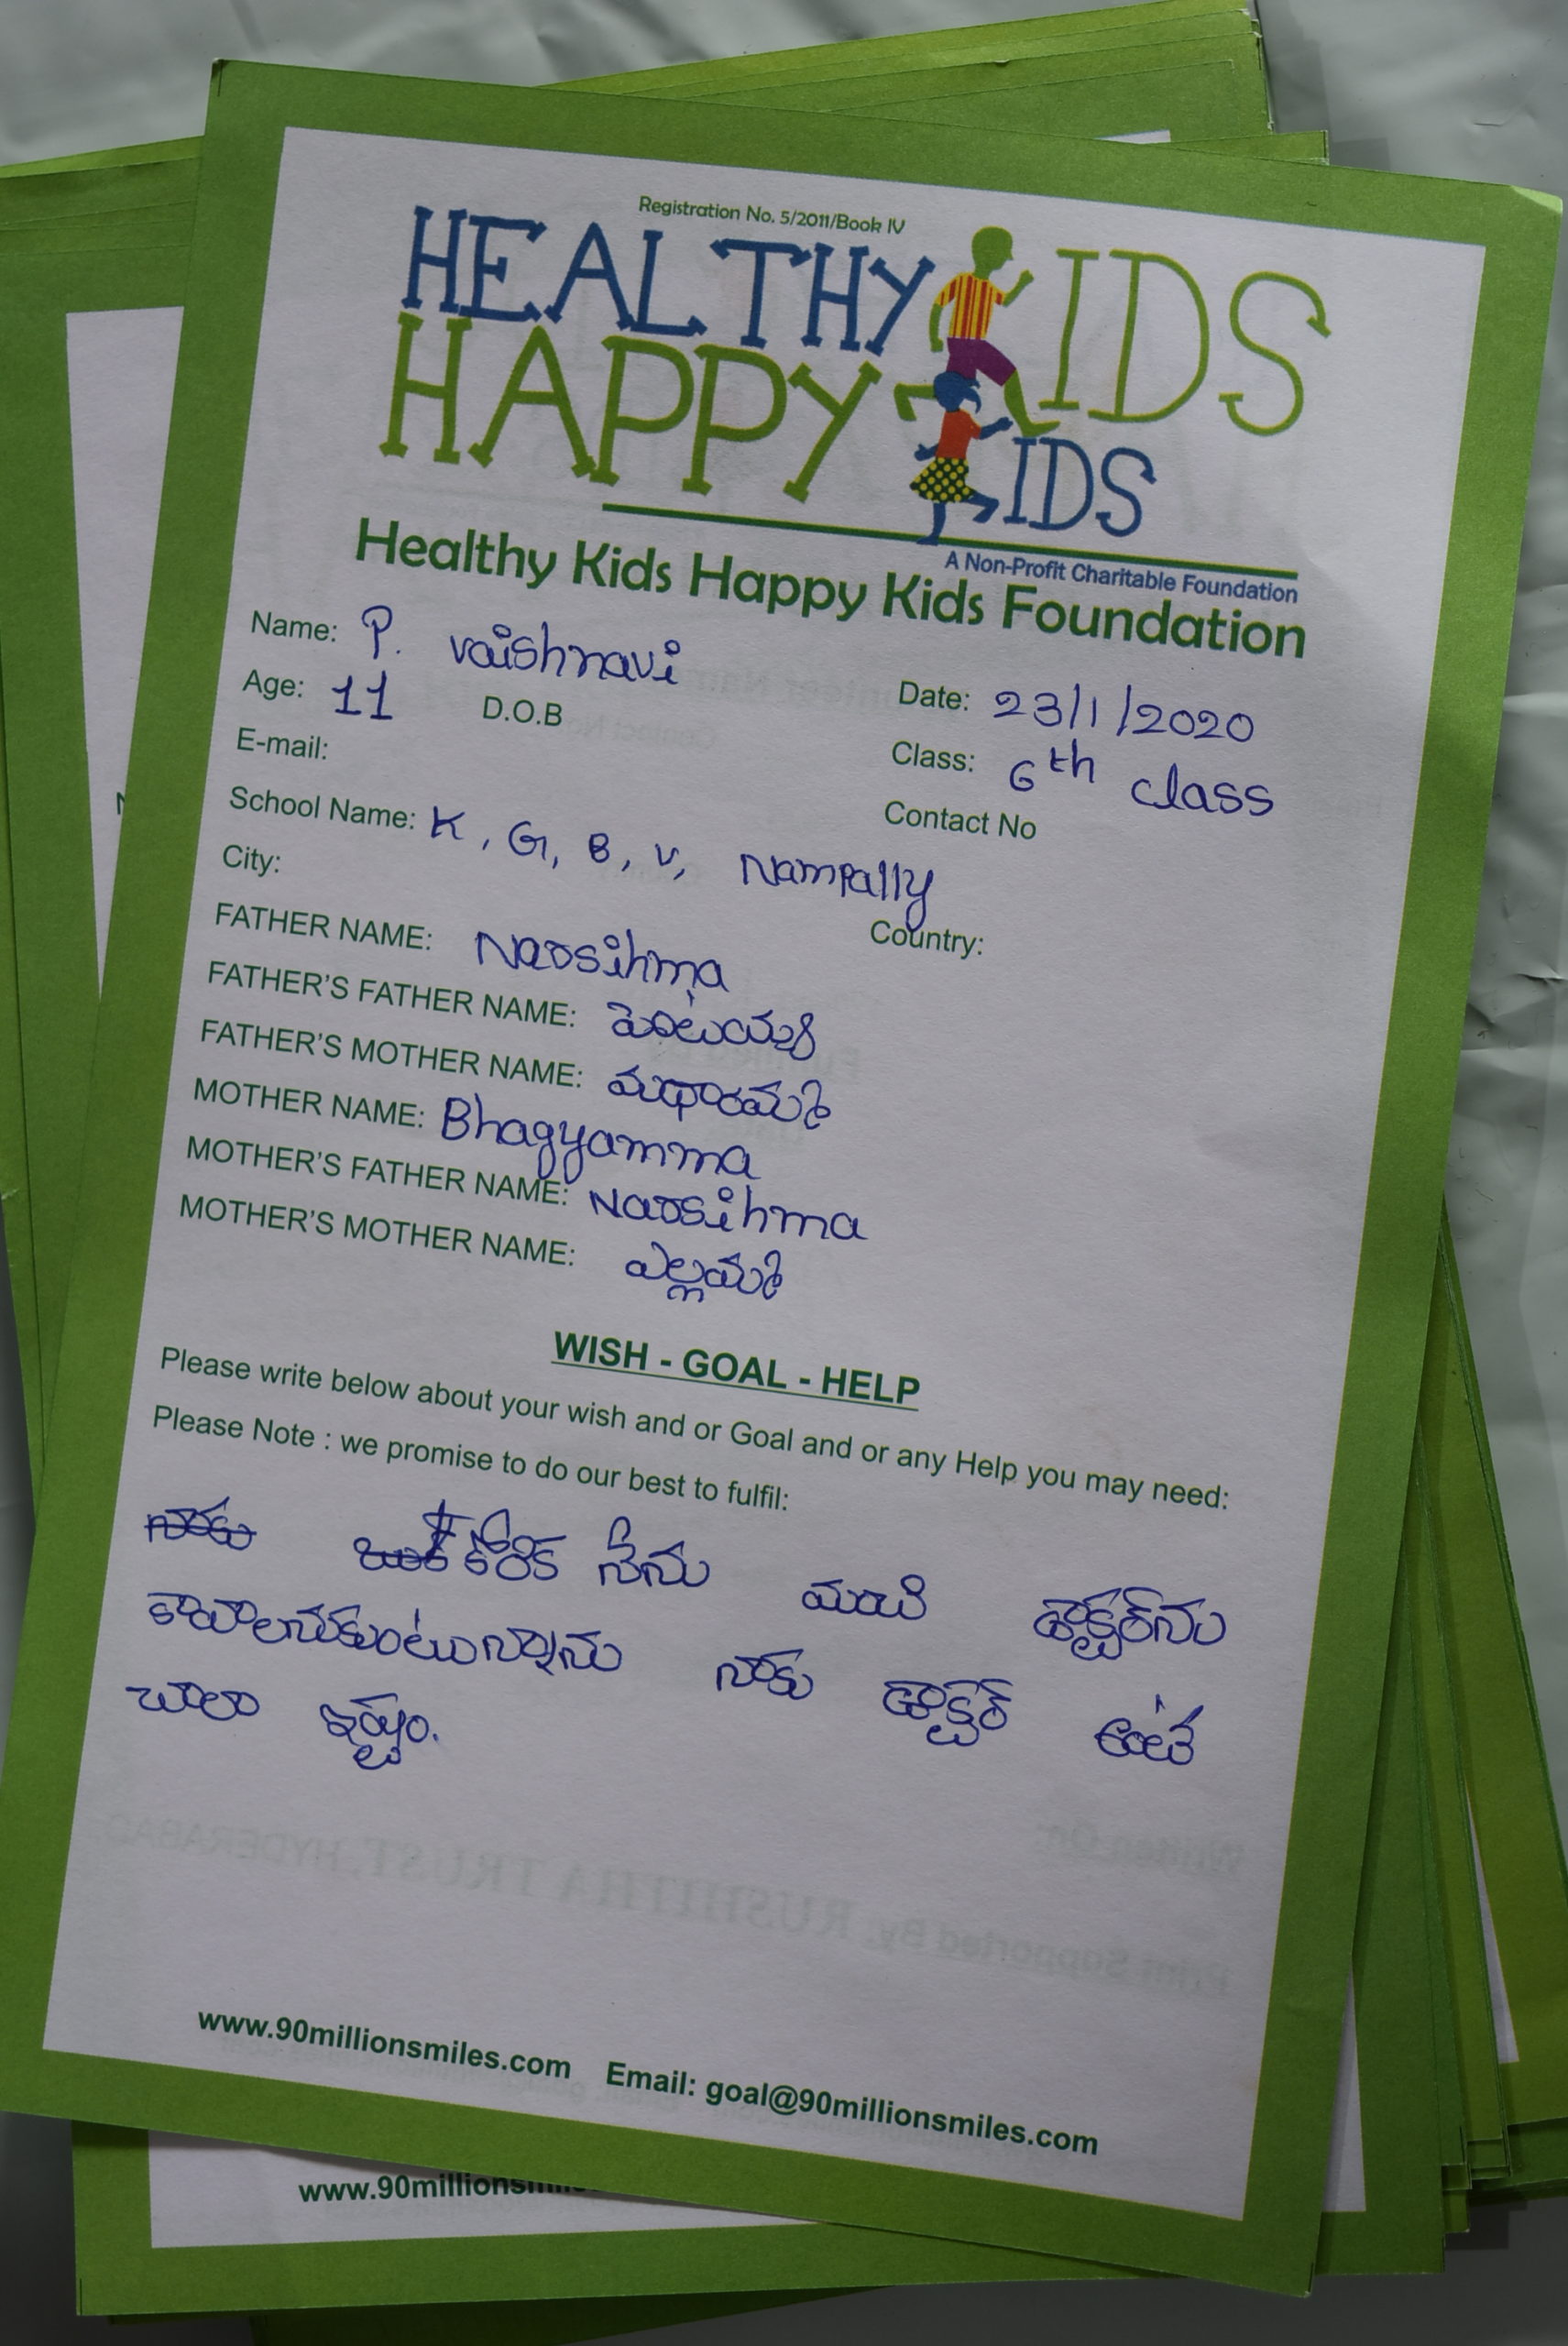 Registration No. 5/2011/Book IV
HEALTHY KIDS
HAPPY KIDS
A Non-Profit Charitable Foundation
Healthy Kids Happy Kids Foundation
Name: P. vaishnavi
Date: 23/1/2020
Age: 11 D.O.B
Class: 6th class
E-mail:
Contact No
School Name: K, G, B, V, Nampally
City:
Country:
FATHER NAME: Narsihma
FATHER'S FATHER NAME:
FATHER'S MOTHER NAME:
MOTHER NAME: Bhagyamma
MOTHER'S FATHER NAME: Narsihma
MOTHER'S MOTHER NAME: ఎల్లమ్మ
WISH - GOAL - HELP
Please write below about your wish and or Goal and or any Help you may need:
Please Note : we promise to do our best to fulfil:
నాకు ఒక కోరిక నేను మంచి డాక్టర్‌ను
కావాలనుకుంటున్నాను నాకు డాక్టర్ అంటే
చాలా ఇష్టం.
www.90millionsmiles.com Email: goal@90millionsmiles.com